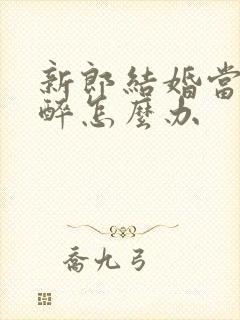 新郎結婚當
醉怎麼办
喬九弓